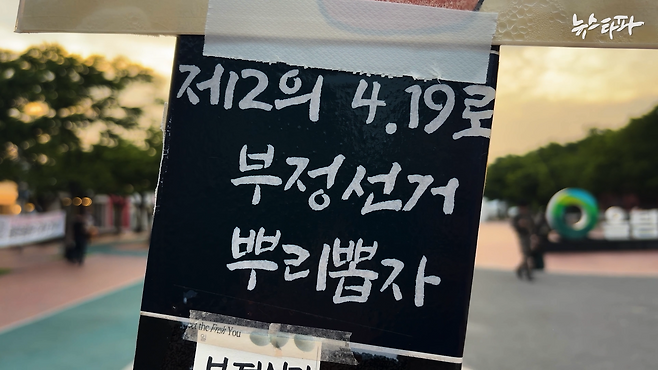 뉴스타파
제12의 4.19로
부정선거
뿌리뽑자
the Fresh You